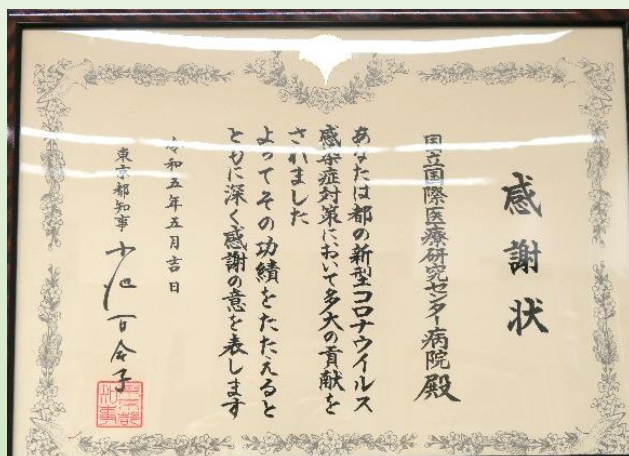 感謝状
国立国際医療研究センター病院 殿
あなたは都の新型コロナウイルス
感染症対策において多大の貢献を
されました
よってその功績をたたえると
ともに深く感謝の意を表します
令和五年五月吉日
東京都知事 小池百合子
東京都
知事